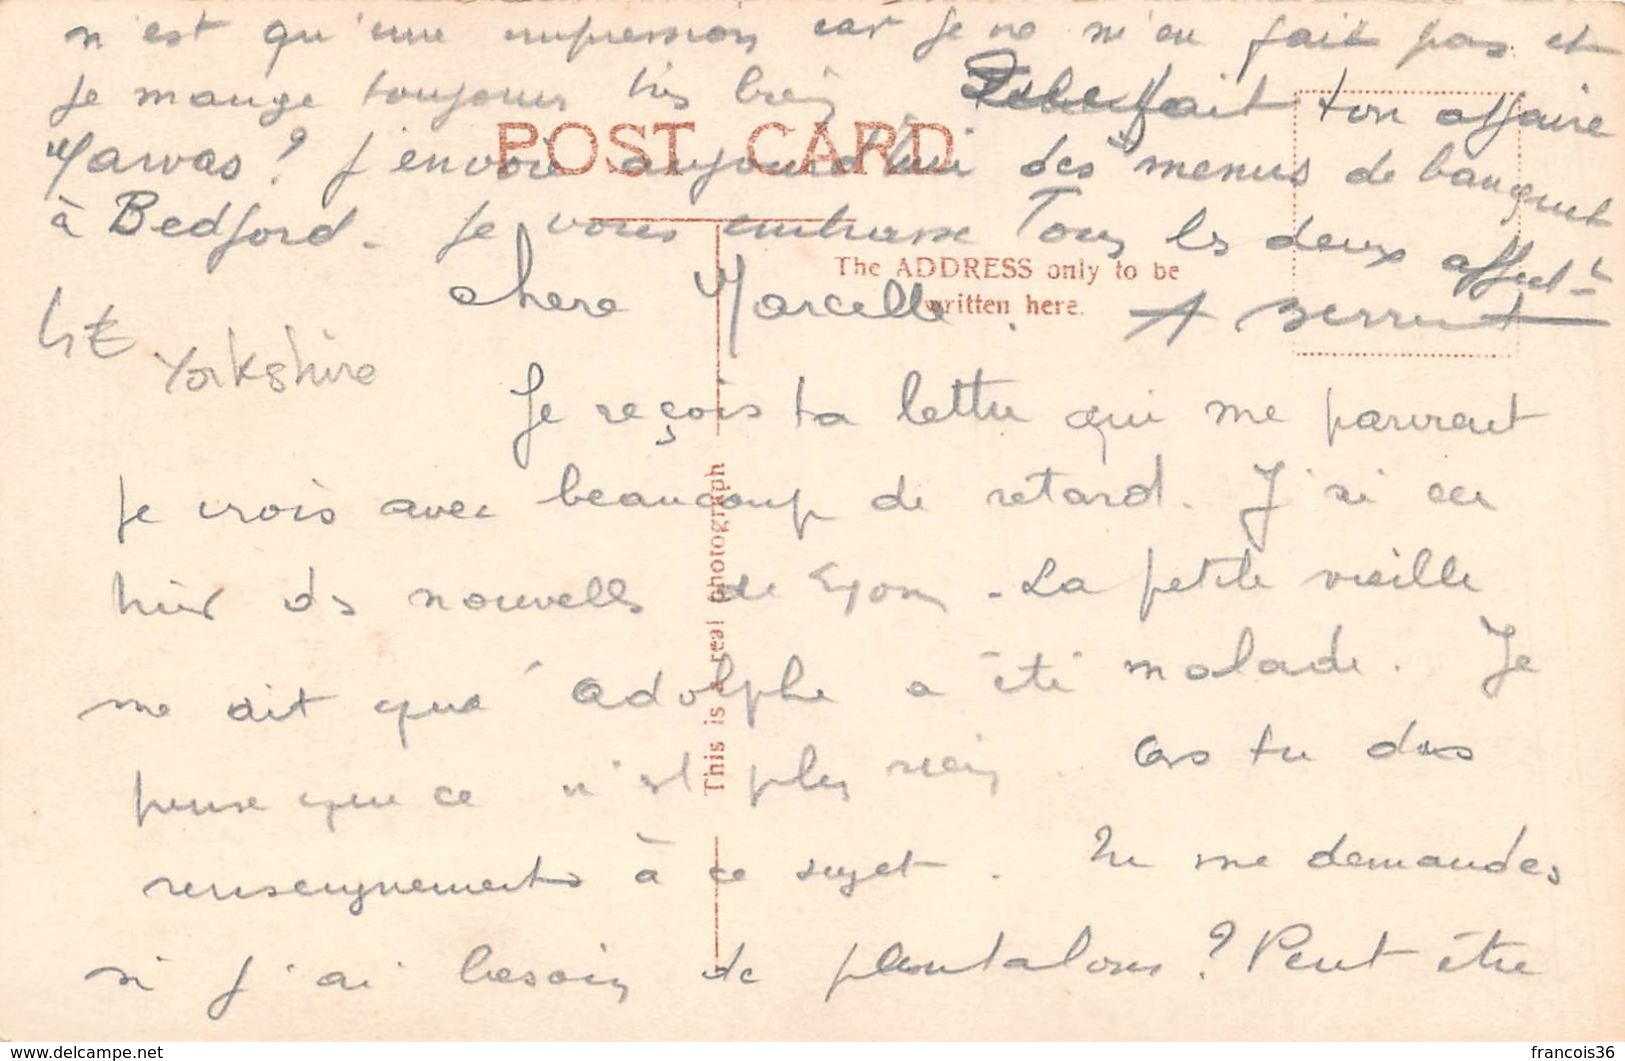 n'est qu'une impression car je ne m'en fait pas et
je mange toujours très bien fait ton affaire
? J'envoie aujourd'hui des menus de banquet
POST CARD
à Bedford. Je vous embrasse Tous les deux affect t
The ADDRESS only to be
written here.
chere Marcelle. A
Yorkshire
Je reçois ta lettre qui me parvient
je crois avec beaucoup de retard. J'ai eu
hier ds nouvelles de Lyon - La petite vieille
me dit que Adolphe a été malade. Je
pense que ce n'est plus rien. as tu des
renseignements à ce sujet. Tu me demandes
si j'ai besoin de pantalons? Peut être
This is a real photograph
delcampe.net
francois36